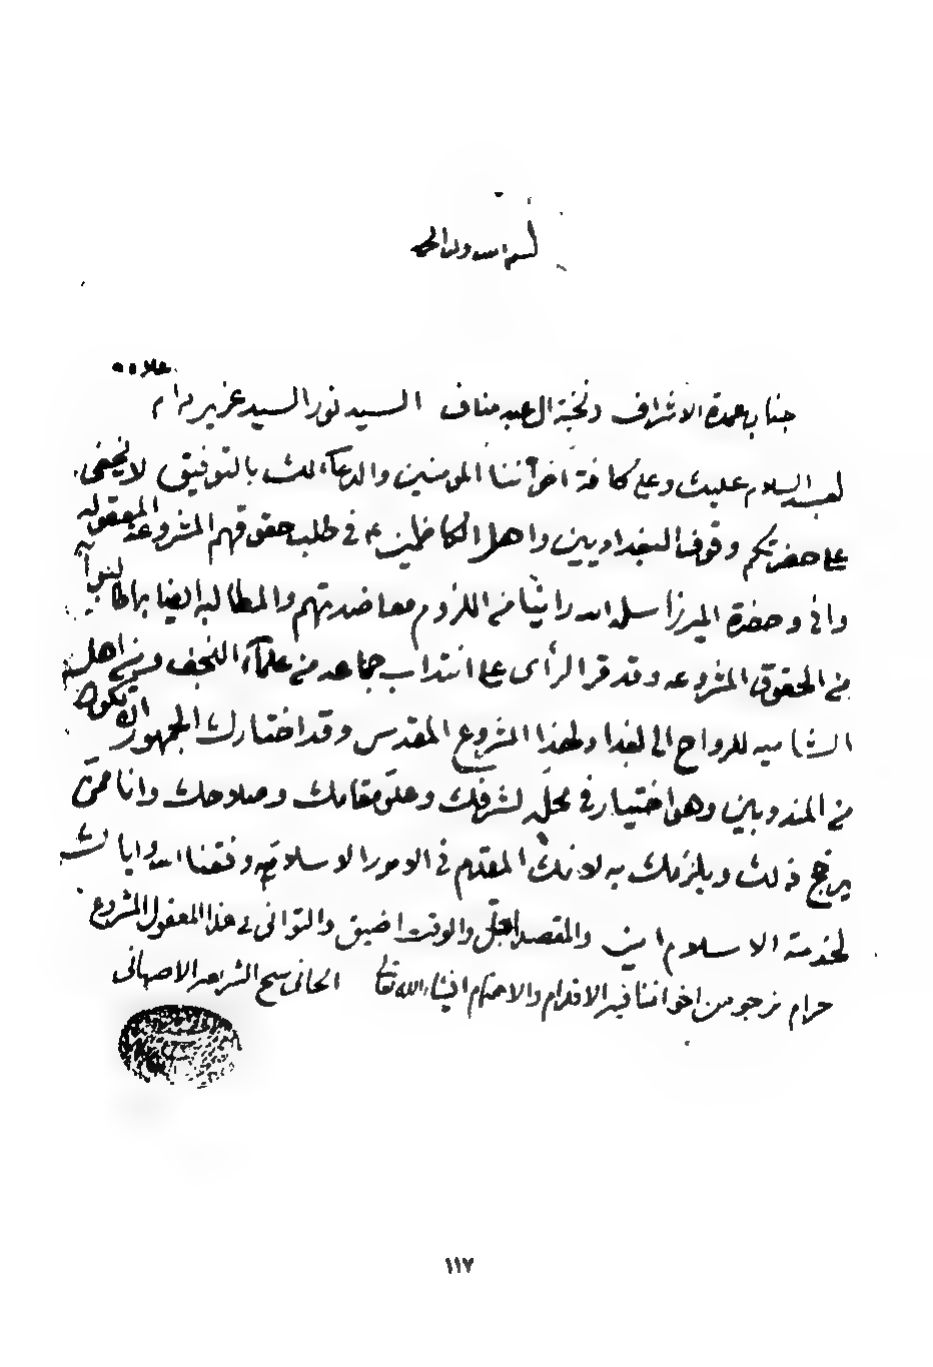 بسم الله وله الحمد
علاه
جناب عمدة الاشراف ونخبة ال عبد مناف السيد نور السيد عزيز دام
بعد السلام عليك وعلى كافة اخواننا المومنين والدعاء لك بالتوفيق لا يخفى
على حضرتكم وقوف البغداديين واهل الكاظمين ع في طلب حقوقهم المشروعة المعقوله
واني وحضرة الميرزا سلمه الله راينا من اللزوم معاضدتهم والمطالبه ايضا بما طالبوا
من الحقوق المشروعه وقد قر الرأى على انتداب جماعه من علماء النجف ومن اهل
الشاميه للرواح الى بغداد ولهذا المشروع المقدس وقد اختارك الجمهور ان تكون
من المندوبين وهو اختيار في محله لشرفك وعلو مقامك وصلاحك وانا ممن
يرجح ذلك ويلزمك به لانك المقدم في الامور الاسلاميه وفقنا الله واياك
لخدمة الاسلام امين والمقصد اجل والوقت اضيق والتوانى في هذا المعقول المشروع
حرام نرجو من اخواننا فيه الاقدام والاهتمام انشاء الله تعالى الجاني شيخ الشريعه الاصفهانى
١١٧